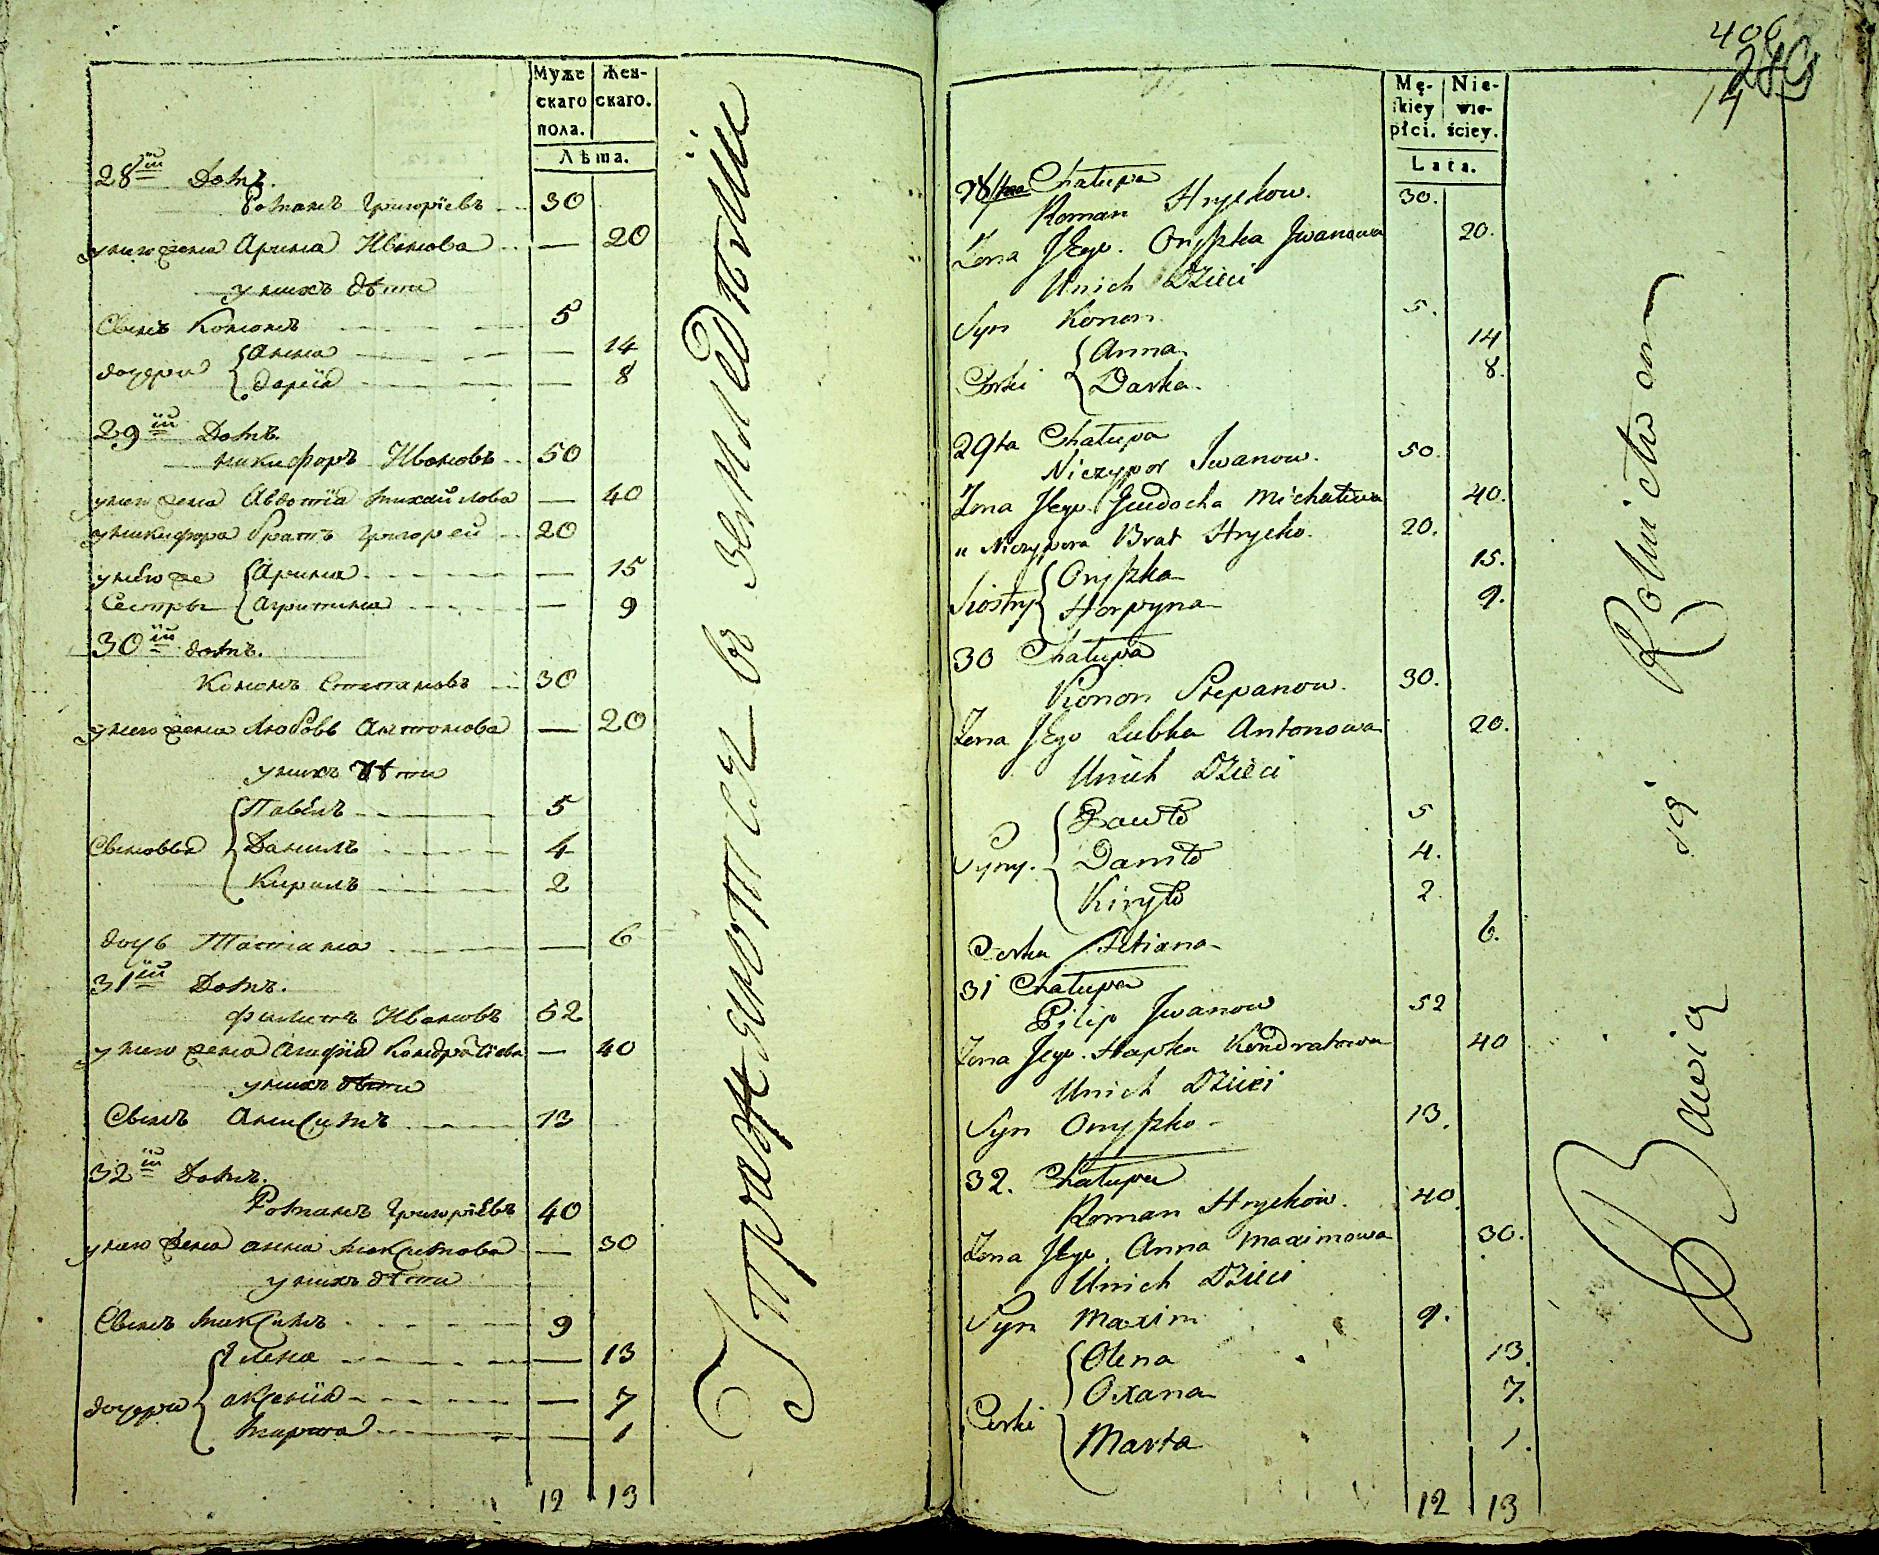 Муже скаго пола. Жен- скаго.
Лѣта.
28ій Домъ.
Романъ Григорїевъ 30
у него жена Арина Иванова — 20
у нихъ дѣти
Сынъ Кононъ 5
дочери Анна — 14
Дарїя — 8
29ій Домъ.
Никифоръ Ивановъ 50
у него жена Авдотїа Михайлова — 40
у Никифора братъ Григорей 20
у него же Арина — 15
Сестры Агрипина — 9
30ій домъ.
Кононъ Степановъ 30
у него жена Любовь Антонова — 20
у нихъ дѣти
Павелъ 5
Сыновья Данилъ 4
Кирилъ 2
дочь Татіана — 6
31ій Домъ.
Филипъ Ивановъ 52
у него жена Агафїя Кондратїева — 40
у нихъ дѣти
Сынъ Анисимъ 13
32ій Домъ.
Романъ Григорїевъ 40
у него жена Анна Максимова — 30
у нихъ дѣти
Сынъ Максимъ 9
Елена — 13
дочери Аксенїя — 7
Марта — 1
12 13
Упражняются въ земледѣлїи
406
14
Mę- skiey płci. Nie- wie- ściey.
Lata.
28 Chałupa
Roman Hryckow. 30.
Żona Jego. Oryszka Jwanowa 20.
Unich Dzieci
Syn Konon 5.
Córki Anna. 14
Darka. 8.
29ta Chałupa
Niczypor Jwanow. 50.
Żona Jego Jewdocha Michałowa 40.
" Niczypora Brat Hrycko. 20.
Siostry Oryszka 15.
Horpyna 9.
30 Chałupa
Konon Stepanow. 30.
Żona Jego Lubka Antonowa 20.
Unich Dzieci
Pawło 5
Syny. Daniło 4.
Kiryło 2.
Corka Tetiana 6.
31 Chałupa
Pilip Jwanow 52
Żona Jego. Hapka Kondratowa 40
Unich Dzieci
Syn Onyszko 13.
32. Chałupa
Roman Hryckow. 40.
Żona Jego. Anna Maximowa 30.
Unich Dzieci
Syn Maxim 9.
Olena 13.
Corki Oxana 7.
Marta 1.
12 13
Bawią się Rolnictwem